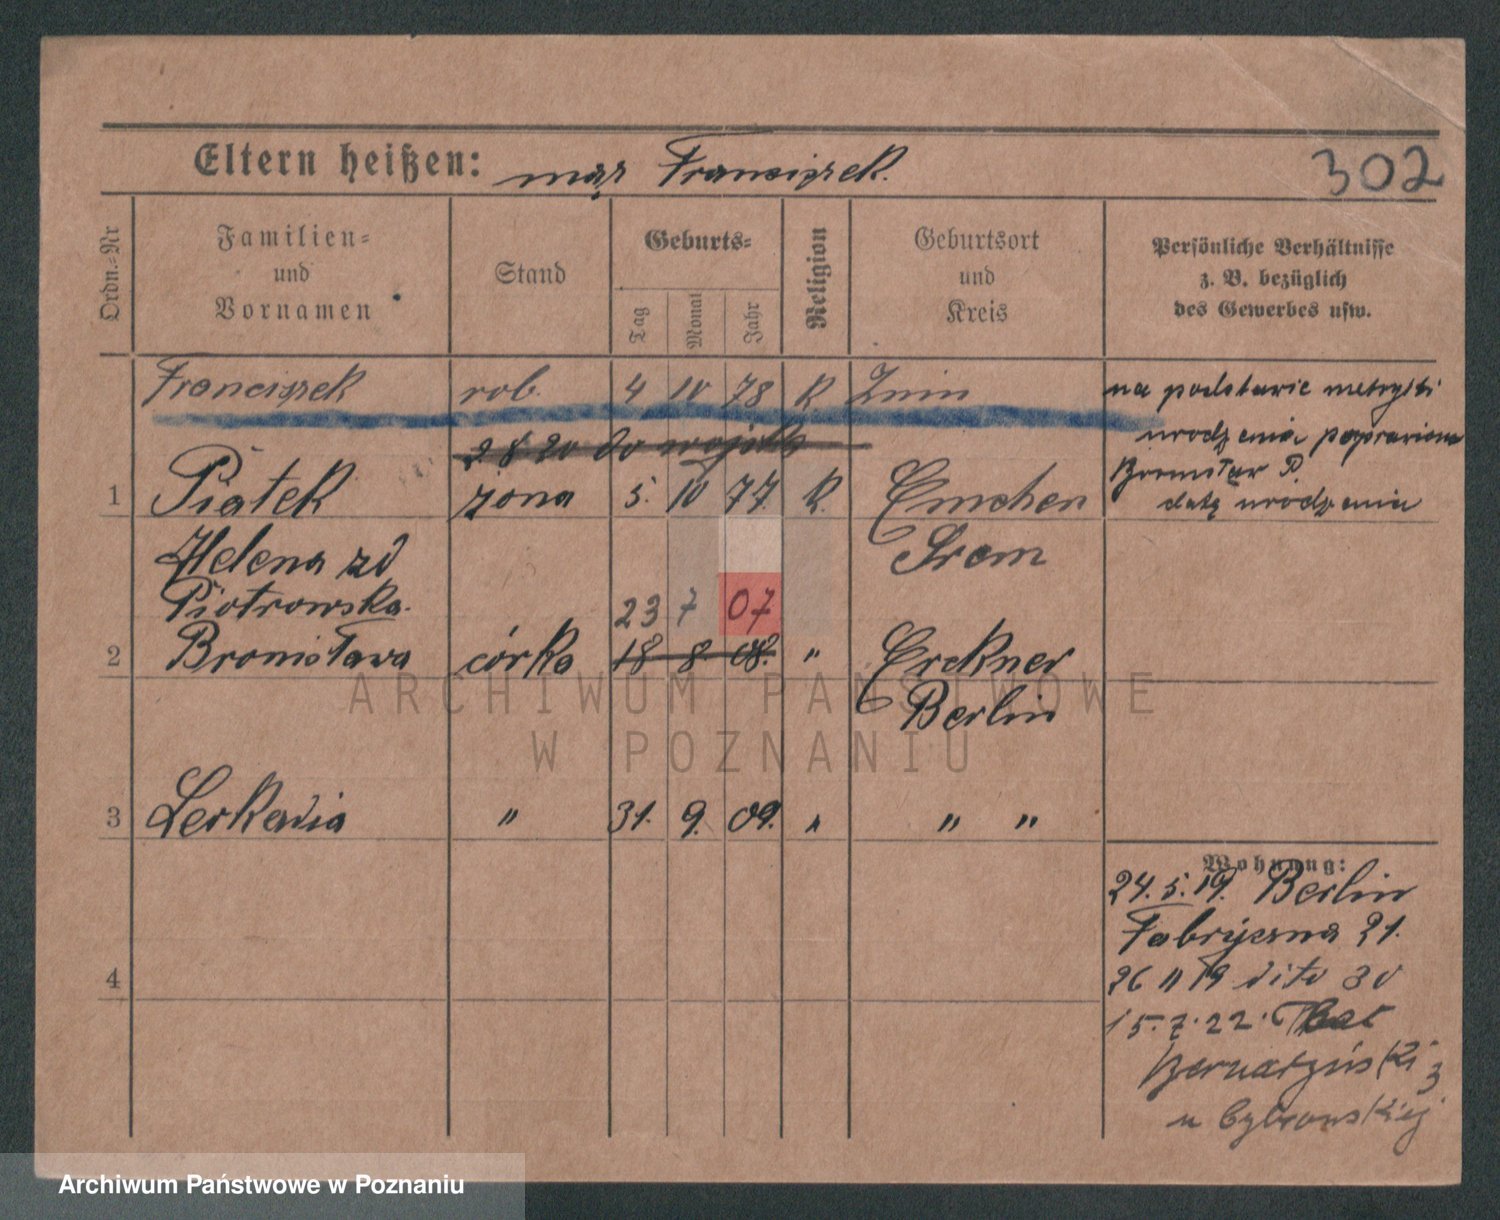 Eltern heißen: mąż Franciszek.
302
Ordn.=Nr
Familien=
und
Vornamen
Stand
Geburts=
Tag
Monat
Jahr
Religion
Geburtsort
und
Kreis
Persönliche Verhältnisse
z. B. bezüglich
des Gewerbes usw.
Franciszek rob. 4 10 78 K Znin
na podstawie metryki
urodzenia poprawiono
Bronisław P.
datę urodzenia
28 20 do wojska
1 Piątek żona 5. 10 77. K. Emchen
Helena zd Śrem
Piotrowska. 23 7 07
2 Bronisława córka 18 8. 08. " Erckner
Berlin
3 Leokadia " 31. 9. 09. " " "
4
Wohnung:
24.5.19. Berlin
Fabryczna 21.
26 11 19 dito 30
15.7.22. Plac
Bernardyński 3
u Cybrowskiej
ARCHIWUM PAŃSTWOWE
W POZNANIU
Archiwum Państwowe w Poznaniu